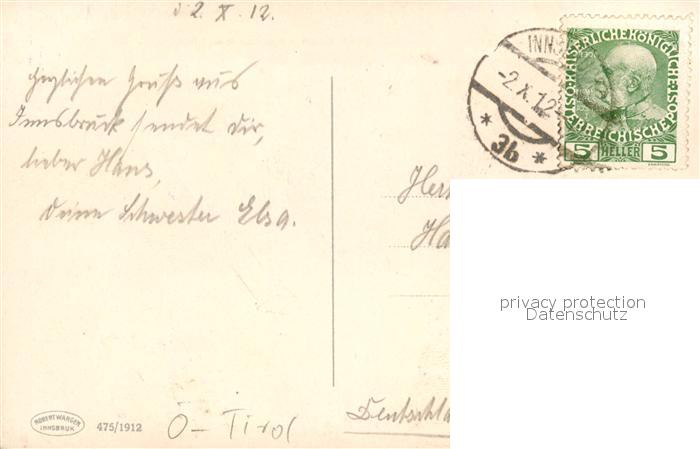 d 2. X. 12.
Herzlichen Gruß aus
Innsbruck sendet Dir,
lieber Hans,
Deine Schwester Elsa.
INNS
-2.X.12
* 3b *
KAISERLICHE KÖNIGLICHE
ÖSTERREICHISCHE POST
5 HELLER 5
Her
Ha
privacy protection
Datenschutz
Deutschla
ROBERT WARGER
INNSBRUK
475/1912
O- Tirol